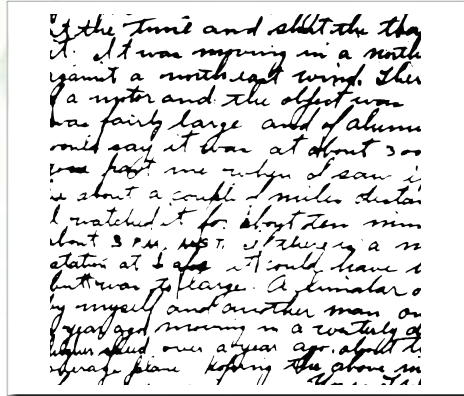 at the time and shut the
it. It was moving in a north
against a northeast wind. Ther
a motor and the object was
was fairly large and of alumi
would say it was at about 300
past me when I saw i
about a couple of miles distan
I watched it for about ten min
about 3 PM, MST. If there is a
station at it could have
but was to large. A similar o
by myself and another man on
year ago moving in a westerly d
higher speed over a year ago. about t
average plane Hoping the above